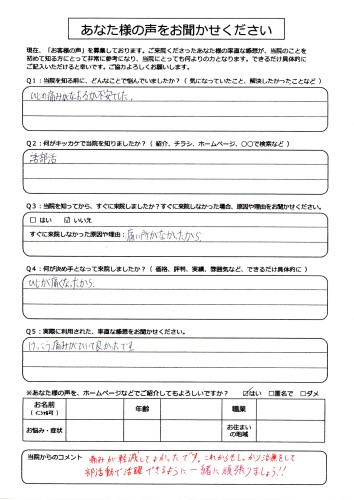 あなた様の声をお聞かせください
現在、「お客様の声」を募集しております。ご来院くださったあなた様の率直な感想が、当院のことを
初めて知る方にとって非常に参考になり、当院にとっても何よりの力となります。できるだけ具体的に
ご記入いただけると幸いです。ご協力よろしくお願いします。
Q1：当院を知る前に、どんなことで悩んでいましたか？（ 気になっていたこと、解決したかったことなど ）
ひじの痛みがなおるか不安でした。
Q2：何がキッカケで当院を知りましたか？（ 紹介、チラシ、ホームページ、〇〇で検索など ）
Q3：当院を知ってから、すぐに来院しましたか？すぐに来院しなかった場合、原因や理由をお聞かせください。
□ はい ☑ いいえ
すぐに来院しなかった原因や理由：痛い所がなかったから
Q4：何が決め手となって来院しましたか？（ 価格、評判、実績、雰囲気など、できるだけ具体的に ）
ひじが痛くなったから
Q5：実際に利用された、率直な感想をお聞かせください。
けっこう痛みがひいて良かったです
※あなた様の声を、ホームページなどでご紹介してもよろしいですか？ ☑はい □匿名で □ダメ
お名前
（ｲﾆｼｬﾙ可）
年齢
職業
お悩み・症状
お住まい
の地域
当院からのコメント 痛みが軽減してよかったです。これからもしっかり治療をして
部活動で活躍できるように一緒に頑張りましょう!!